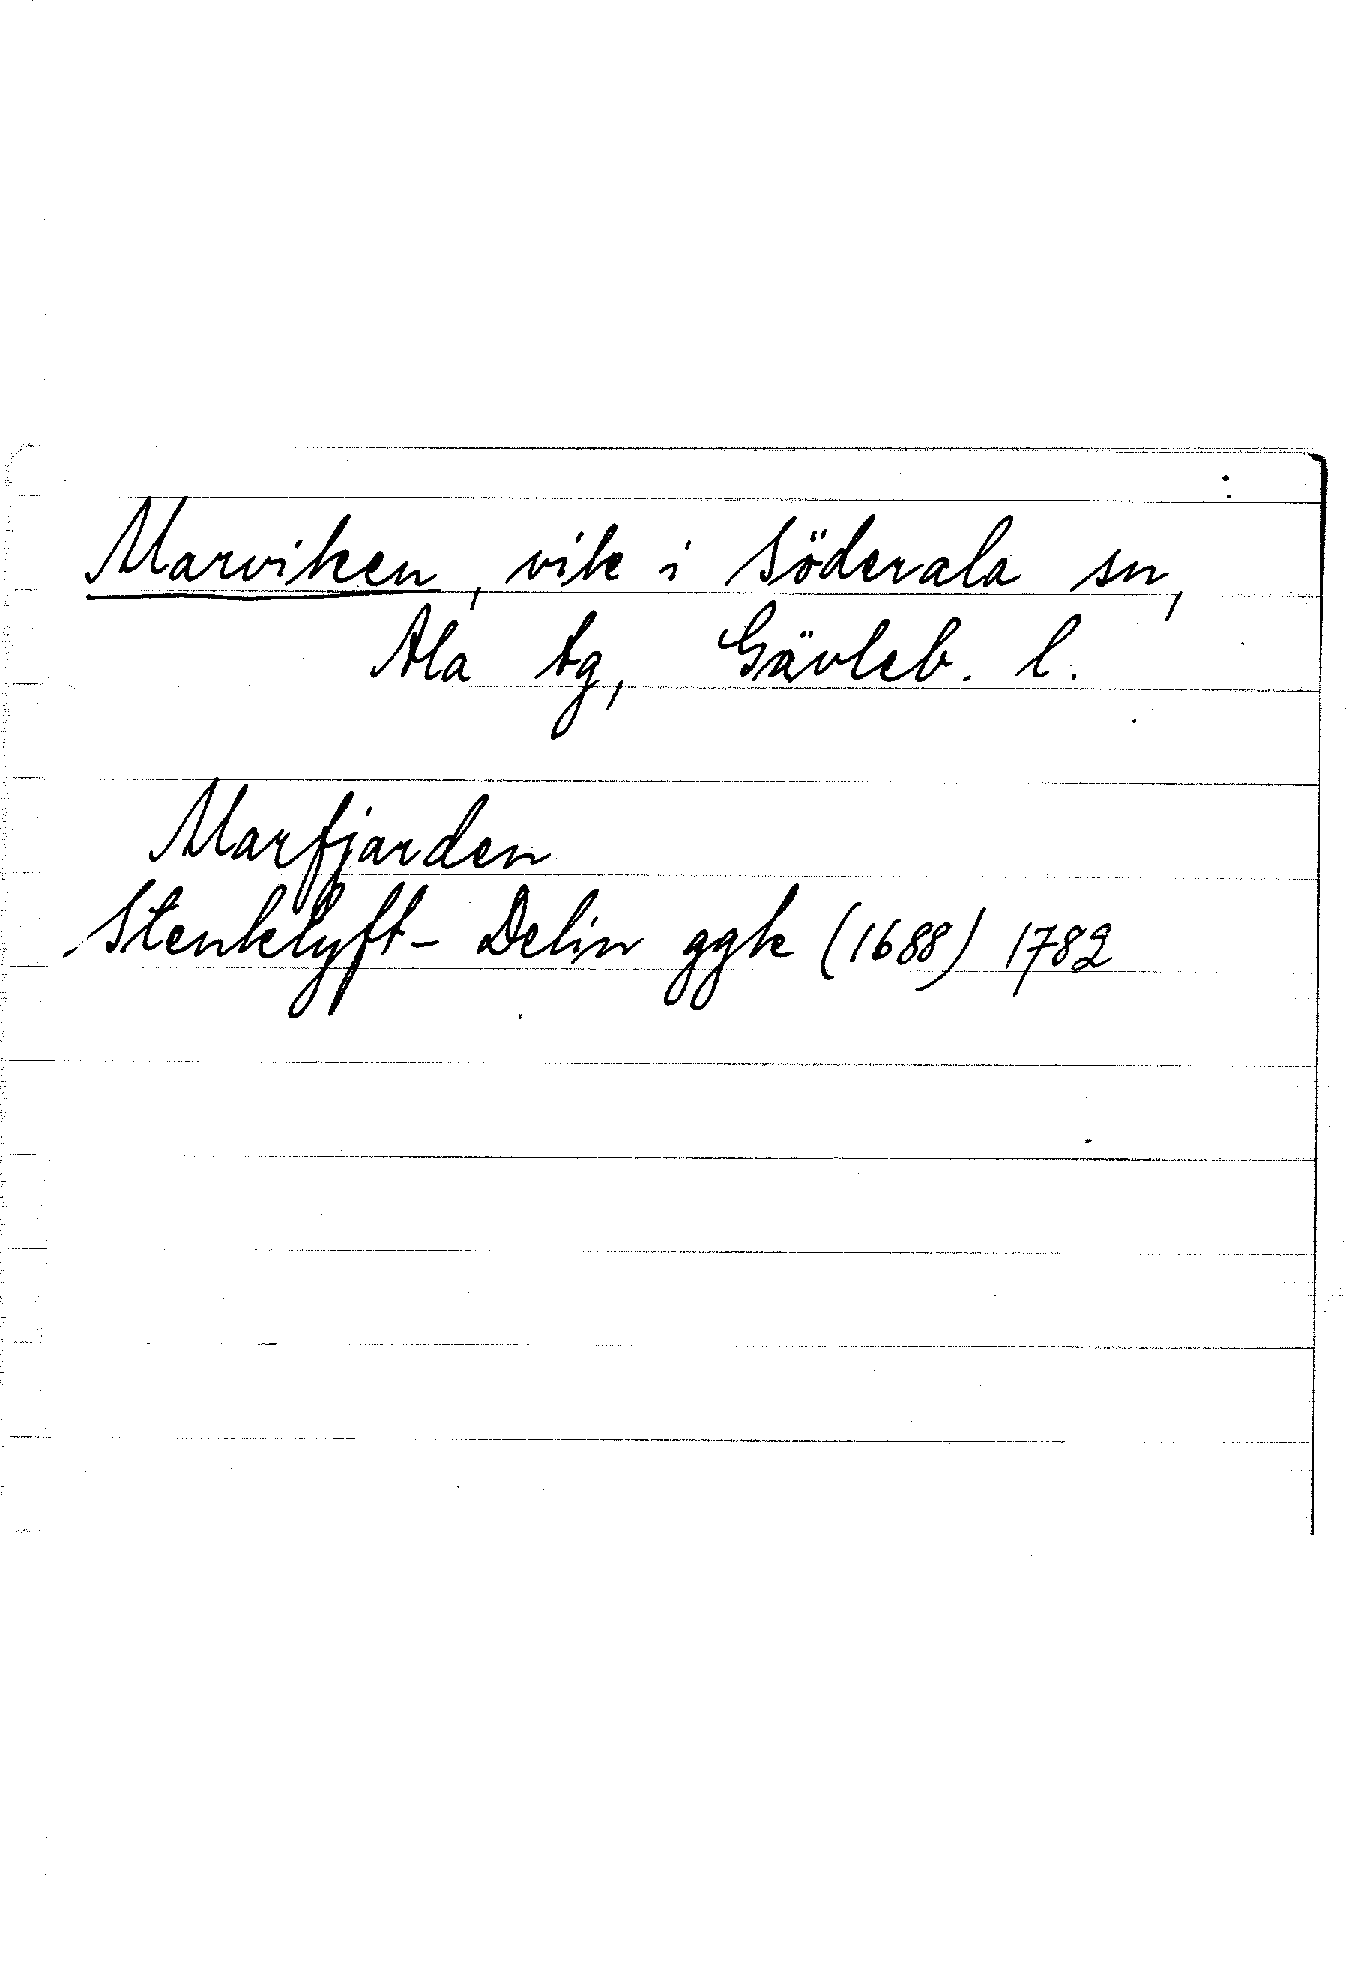 Marviken, vik i Söderala sn,
Ala tg, Gävleb. l.
Marfjarden
Stenklyft- Delin ggk (1688) 1782